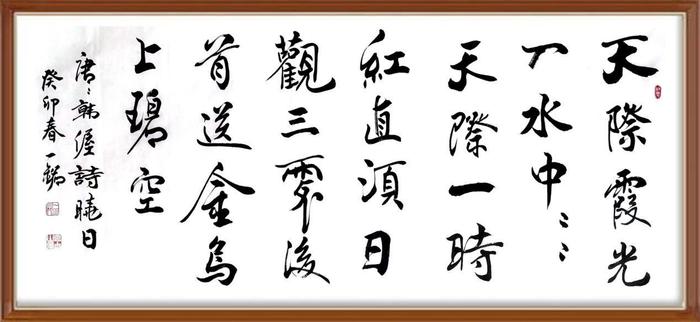 天際霞光
入水中〻〻
天際一時
紅直須日
觀三更後
首送金烏
上碧空
唐〻韓偓詩曉日
癸卯春一